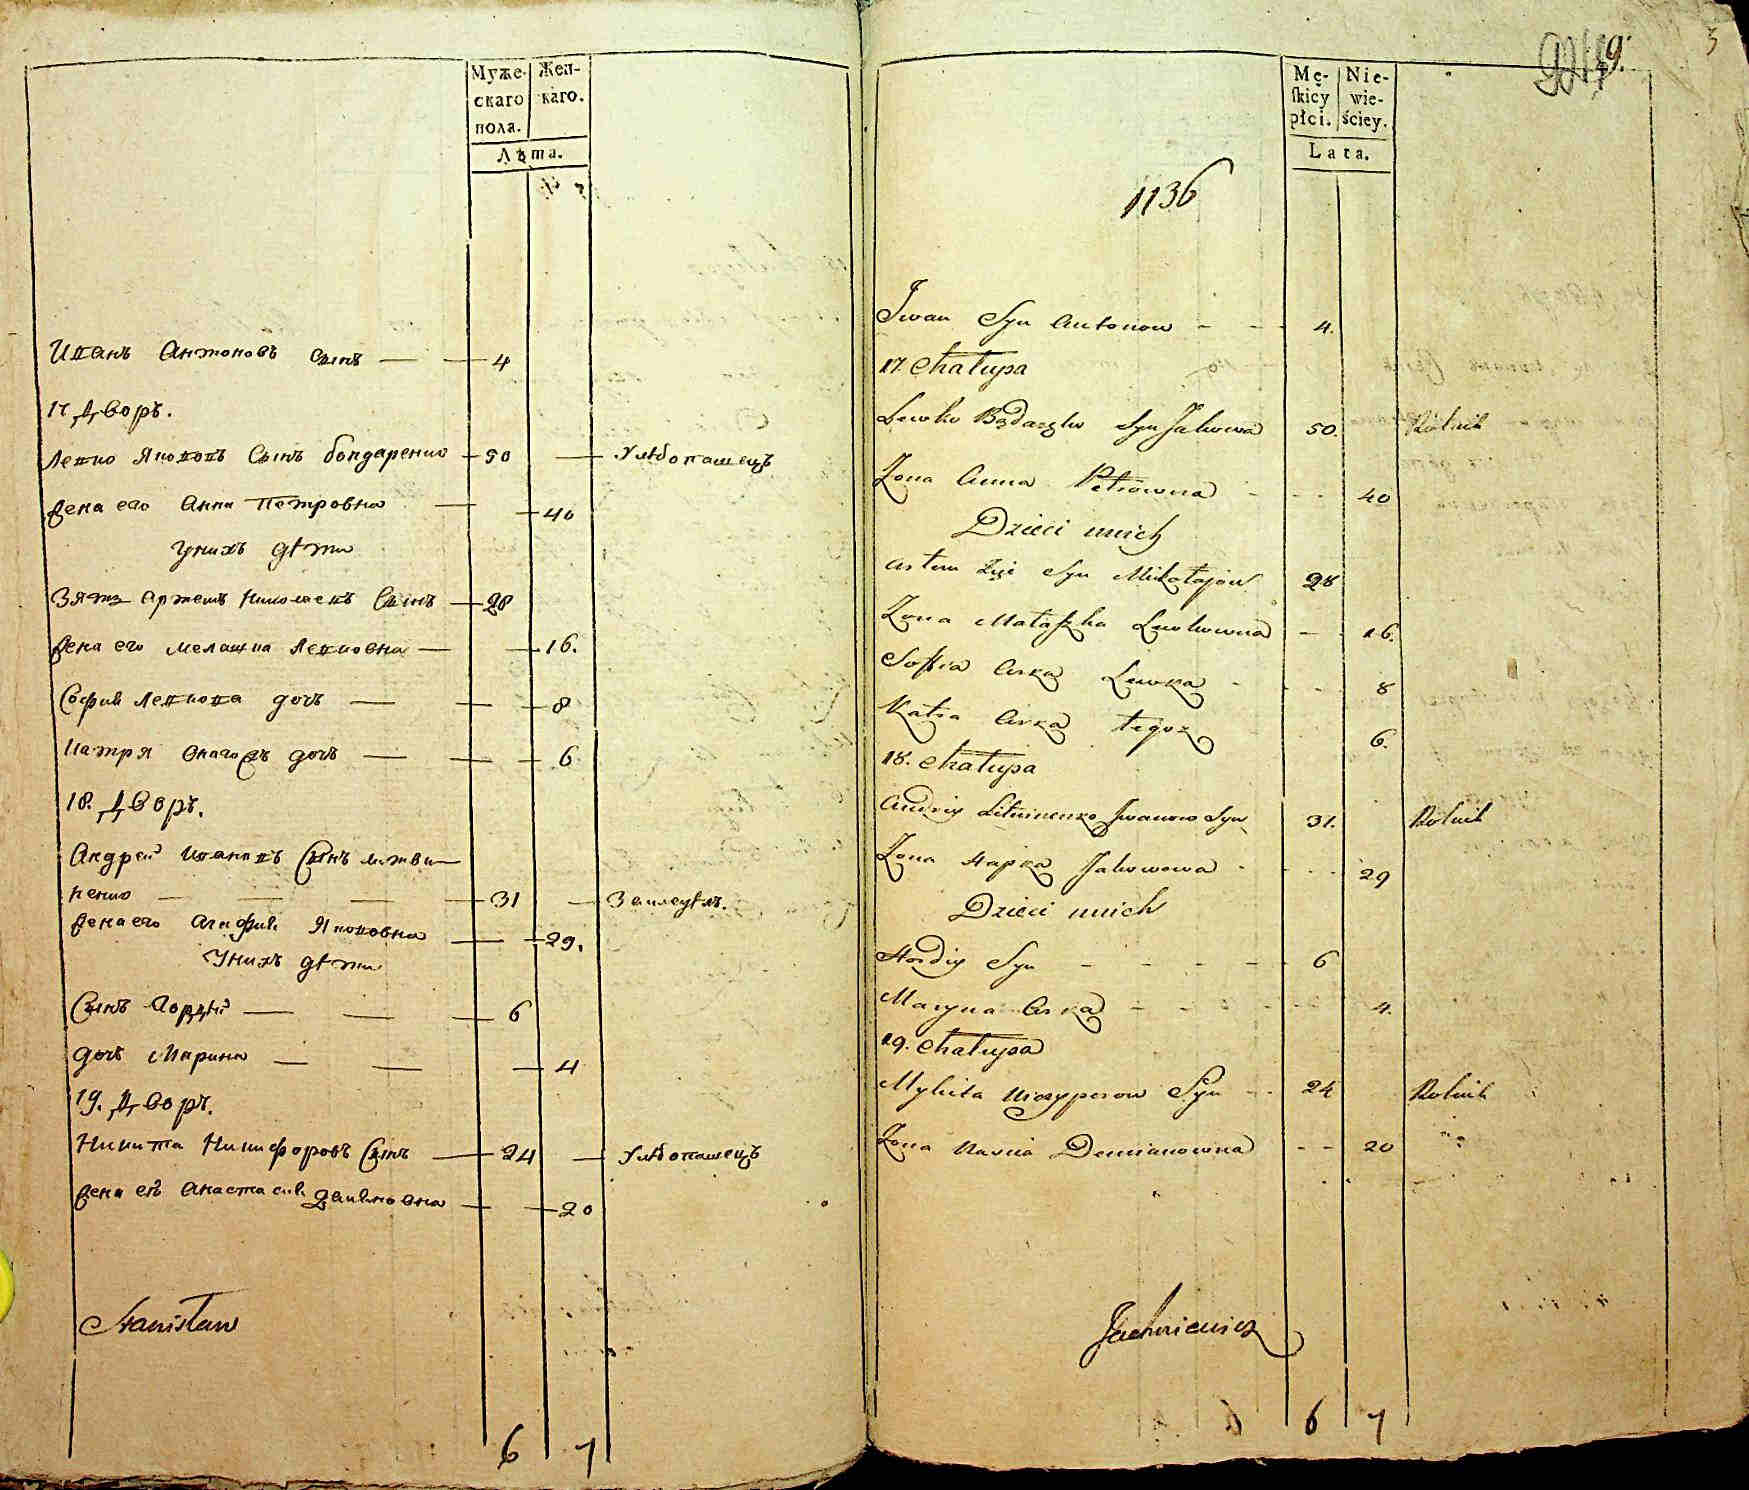 Муже-
скаго
пола.
Жен-
каго.
Лѣта.
Иванъ Антоновъ сынъ — — 4
17. Дворъ.
Левко Якововъ Сынъ бондаренко — 50 — Хлѣбопашецъ
Жена его Анна Петровна — — 40
у нихъ дѣти
Зять Артемъ Николаевъ Сынъ — 28
Жена его Мелашка Левковна — — 16.
София Левкова дочь — — — 8
Катря Оногожъ дочь — — — 6
18. Дворъ.
Андрей Ивановъ Сынъ литви-
ненко — — — — 31 — Земледѣлъ.
Жена его Агафия Якововна — — 29.
У нихъ дѣти
Сынъ Гордѣй — — — 6
дочь Марина — — — 4
19. Дворъ.
Никита Никифоровъ Сынъ — 24 — Хлѣбопашецъ
Жена его Анастасия Демяновна — — 20
Stanisław
6 7
9.
3
Mę-
skiey
płci.
Nie-
wie-
ściey.
Lata.
1136
Iwan Syn Antonow - - - 4.
17. Chałupa
Lewko Bądarzko Syn Jakowa 50. Rolnik
Zona Anna Petrowna - - - 40
Dzieci u nich
Artem Zięć Syn Mikołajow 28
Zona Małaszka Lewkowna - - 16.
Sofia Corka Lewka - - - 8
Katra Corka tegoz - - 6.
18. Chałupa
Andriy Litwinenko Iwanow Syn 31. Rolnik
Zona Hapka Jakowowa - - - - 29
Dzieci u nich
Hordiy Syn - - - - - 6
Maryna Corka - - - - - - 4.
19. Chałupa
Mykita Niczyporow Syn - - 24 Rolnik
Zona Nascia Demianowna - - 20
Jachniewicz
6 7